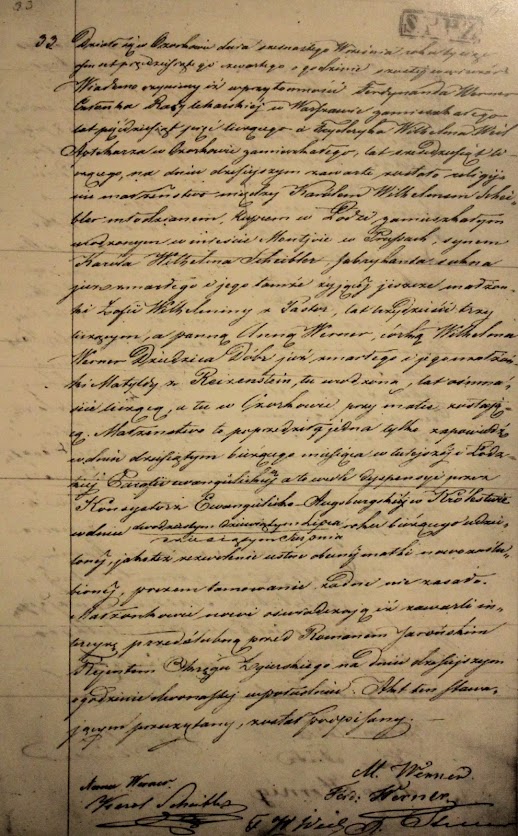 33
33
Działo się w Ozorkowie dnia szesnastego Września roku tysiąc
ośmset pięćdziesiątego czwartego o godzinie szóstej wieczorem
Wiadomo czynimy iż w przytomności Ferdynanda Werner
Członka Rady Lekarskiej w Warszawie zamieszkałego
lat pięćdziesiąt liczącego i Fryderyka Wilhelma Weil
Aptekarza w Ozorkowie zamieszkałego, lat
na dniu dzisiejszym zawarte zostało religij-
ne małżeństwo między Karolem Wilhelmem Schei-
bler młodzianem, kupcem w Łodzi zamieszkałym
urodzonym w mieście Montjoie w Prusach, synem
Karola Wilhelma Scheibler fabrykanta sukna
już zmarłego i jego tamże żyjącej jeszcze małżon-
ki Zofii Wilhelminy z Pastor, lat trzydzieści trzy
liczącym, a panną Anną Werner, córką Wilhelma
Werner Dziedzica Dóbr już zmarłego i jego małżon-
ki Matyldy z Reizenstein, tu urodzoną, lat ośmna-
ście liczącą, a tu w Ozorkowie przy matce zostają-
cą. Małżeństwo to poprzedziła jedna tylko zapowiedź
w dniu dziesiątym bieżącego miesiąca w tutejszej i Łodz-
kiej Parafii ewangelickiej a to wsku dyspensy przez
Konsystorz Ewangelicko-Augsburgski w Królestwie
w dniu dwudziestym dziewiątym Lipca roku bieżącego udzie-
Sierpnia
lonej, jakoteż zezwolenie ustne obecnej matki nowozaślu-
bionej, poczem tamowanie żadne nie zaszło.
Małżonkowie nowi oświadczają iż zawarli in-
tercyzę przedślubną przed Romanem Jarońskim
Rejentem Okręgu Zgierskiego na dniu dzisiejszym
o godzinie dwunastej w południe. Akt ten stawa-
jącym przeczytany, został podpisany.
Anna Werner
M. Werner
Karol Scheibler
Ferd. Werner
F W Weil